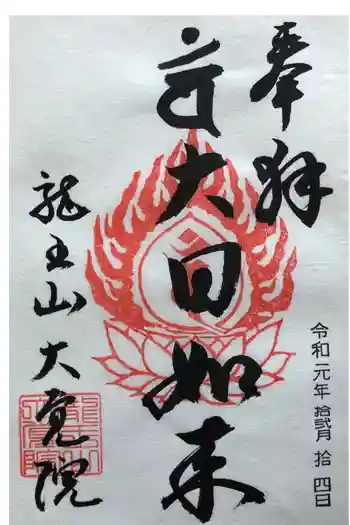 奉拝
大日如来
龍王山大覚院
令和元年拾弐月拾四日